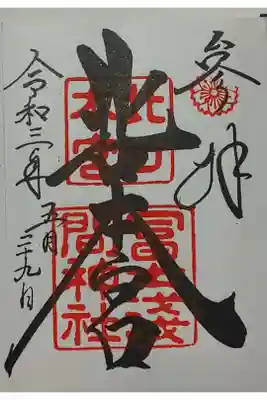 参拝
北口本宮
北口
本宮
冨士淺
間神社
令和三年五月二十九日